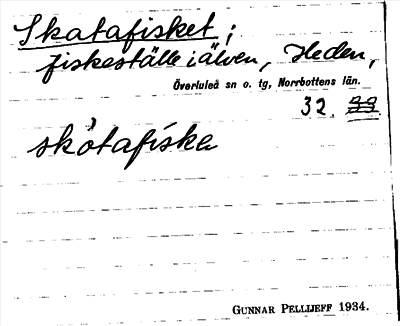 Skatafisket;
fiskeställe i älven, Heden,
Överluleå sn o. tg, Norrbottens län.
32.
skòtafìska
GUNNAR PELLIJEFF 1934.